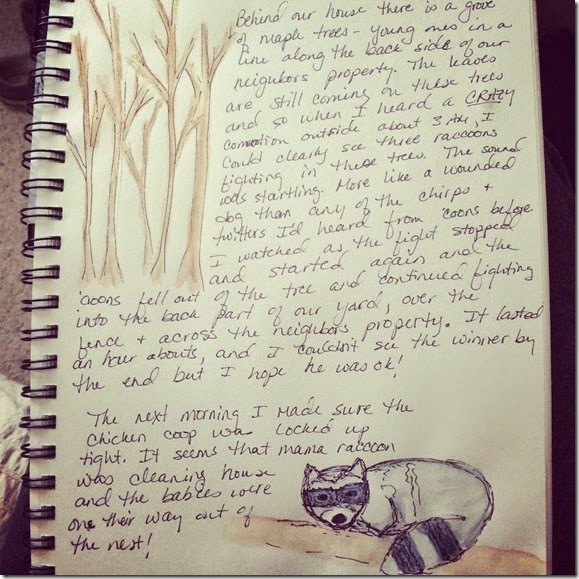 Behind our house there is a grove
of maple trees - young ones in a
line along the back side of our
neighbors property. The leaves
are still coming on these trees
and so when I heard a CRAZY
commotion outside about 3 AM, I
could clearly see three raccoons
fighting in these trees. The sound
was startling. More like a wounded
dog than any of the chirps +
twitters I'd heard from 'coons before.
I watched as the fight stopped
and started again and the
'coons fell out of the tree and continued fighting
into the back part of our yard, over the
fence + across the neighbors property. It lasted
an hour abouts, and I couldn't see the winner by
the end but I hope he was ok!
The next morning I made sure the
chicken coop was locked up
tight. It seems that mama raccoon
was cleaning house
and the babies were
one their way out of
the nest!